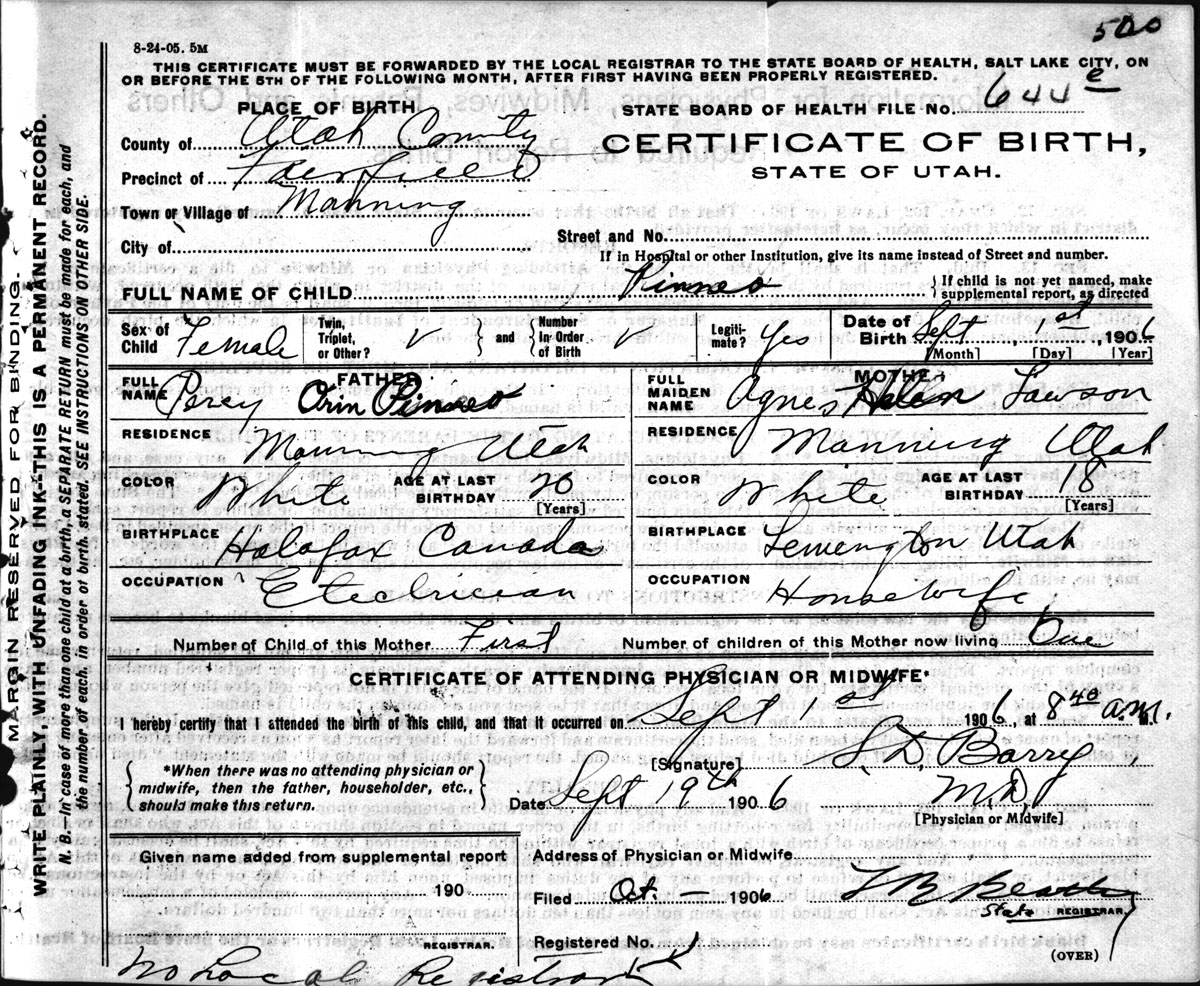 500
8-24-05. 5M
THIS CERTIFICATE MUST BE FORWARDED BY THE LOCAL REGISTRAR TO THE STATE BOARD OF HEALTH, SALT LAKE CITY, ON
OR BEFORE THE 5TH OF THE FOLLOWING MONTH, AFTER FIRST HAVING BEEN PROPERLY REGISTERED.
PLACE OF BIRTH
STATE BOARD OF HEALTH FILE No. 644 e
County of Utah County
CERTIFICATE OF BIRTH,
Precinct of Fairfield
STATE OF UTAH.
Town or Village of Manning
City of
Street and No.
If in Hospital or other Institution, give its name instead of Street and number.
FULL NAME OF CHILD Pinneo
If child is not yet named, make
supplemental report, as directed
Sex of Child Female
Twin, Triplet, or Other? V
and
Number in Order of Birth V
Legitimate? Yes
Date of Birth Sept 1st, 1906
[Month] [Day] [Year]
FATHER
FULL NAME Percy Orin Pinneo
MOTHER
FULL MAIDEN NAME Agnes Helen Lawson
RESIDENCE Manning Utah
RESIDENCE Manning Utah
COLOR White AGE AT LAST BIRTHDAY 20 [Years]
COLOR White AGE AT LAST BIRTHDAY 18 [Years]
BIRTHPLACE Halofax Canada
BIRTHPLACE Lemington Utah
OCCUPATION Electrician
OCCUPATION Housewife
Number of Child of this Mother First
Number of children of this Mother now living One
CERTIFICATE OF ATTENDING PHYSICIAN OR MIDWIFE*
I hereby certify that I attended the birth of this child, and that it occurred on Sept 1st 1906 at 8 40 a.m.
*When there was no attending physician or
midwife, then the father, householder, etc.,
should make this return.
[Signature] S. D. Barry,
Date Sept 19th 1906
M.D.
[Physician or Midwife]
Given name added from supplemental report
190
REGISTRAR.
Address of Physician or Midwife
Filed Oct - 1906
T B Beatty
State REGISTRAR.
Registered No. 1
(OVER)
No Local Registrar
MARGIN RESERVED FOR BINDING.
WRITE PLAINLY, WITH UNFADING INK--THIS IS A PERMANENT RECORD.
N. B.—In case of more than one child at a birth, a SEPARATE RETURN must be made for each, and
the number of each, in order of birth, stated. SEE INSTRUCTIONS ON OTHER SIDE.